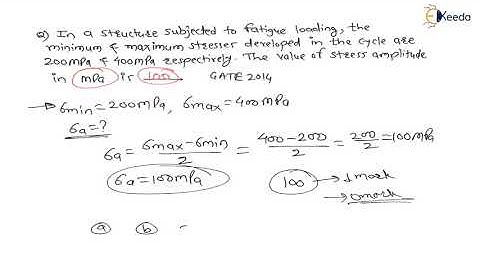 Ekeeda
Q) In a structure subjected to fatigue loading, the
minimum & maximum stresses developed in the cycle are
200MPa & 400MPa respectively. The value of stress amplitude
in MPa is 100 GATE 2014
→ 6min = 200MPa, 6max = 400MPa
6a = ?
6a = 6max - 6min / 2 = 400 - 200 / 2 = 200 / 2 = 100MPa
6a = 100MPa 100 → 1 mark
→ 0 mark
a b